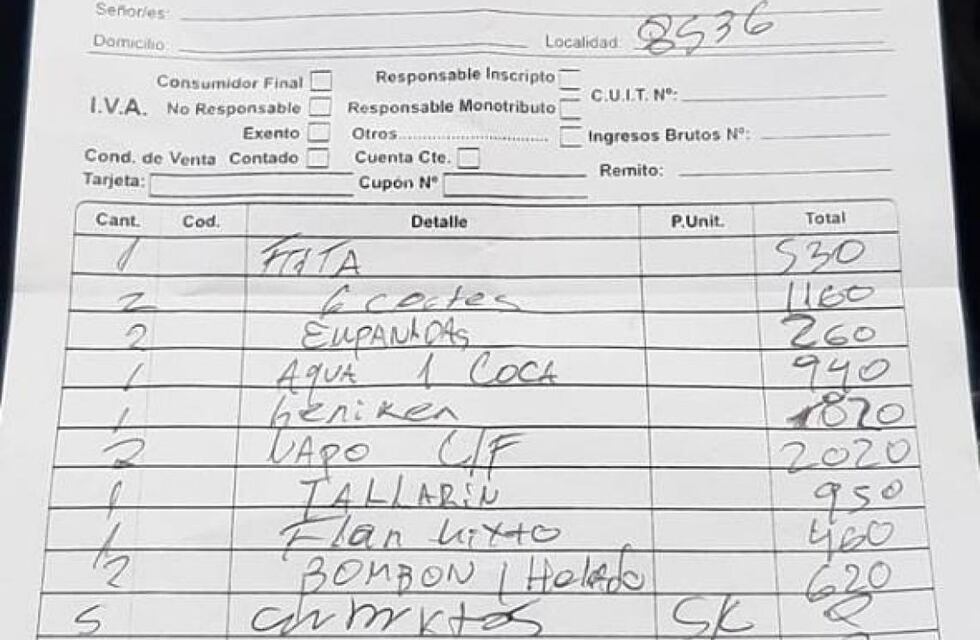 Señor/es:
Domicilio: Localidad: 8536
Consumidor Final Responsable Inscripto C.U.I.T. Nº:
I.V.A. No Responsable Responsable Monotributo
Exento Otros.................................. Ingresos Brutos Nº:
Cond. de Venta Contado Cuenta Cte. Remito:
Tarjeta: Cupón Nº
Cant. Cod. Detalle P.Unit. Total
1 FRITA 530
2 6 cortes 1160
2 EMPANADAS 260
1 AQUA 1 COCA 940
1 heniken 820
2 NAPO C/F 2020
1 TALLARIN 950
1 Flan Mixto 460
1/2 BOMBON 1 Helado 620
5 cubiertos SK